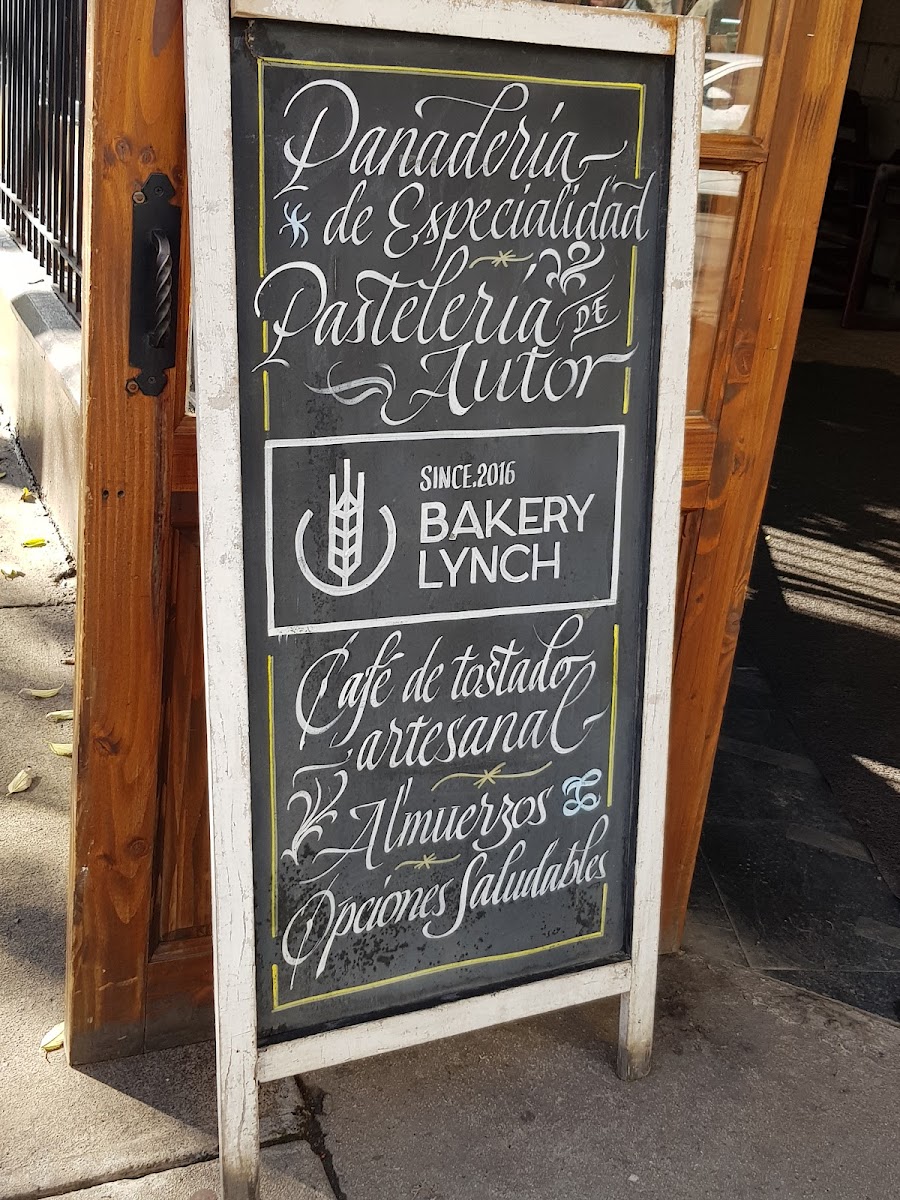 Panadería
de Especialidad
Pastelería DE
Autor
SINCE.2016
BAKERY
LYNCH
Café de tostado
artesanal
Almuerzos
Opciones Saludables